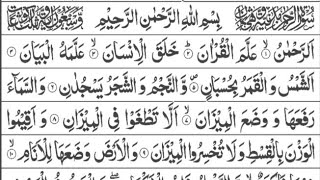 بِسْمِ اللهِ الرَّحْمٰنِ الرَّحِيْمِ
اَلرَّحْمٰنُ ۙ۱ عَلَّمَ الْقُرْاٰنَ ؕ۲ خَلَقَ الْاِنْسَانَ ۙ۳ عَلَّمَهُ الْبَيَانَ ۴
اَلشَّمْسُ وَ الْقَمَرُ بِحُسْبَانٍ ۪۵ وَّ النَّجْمُ وَ الشَّجَرُ يَسْجُدٰنِ ۶ وَ السَّمَآءَ
رَفَعَهَا وَ وَضَعَ الْمِيْزَانَ ۙ۷ اَلَّا تَطْغَوْا فِي الْمِيْزَانِ ۸ وَ اَقِيْمُوا
الْوَزْنَ بِالْقِسْطِ وَ لَا تُخْسِرُوا الْمِيْزَانَ ۹ وَ الْاَرْضَ وَضَعَهَا لِلْاَنَامِ ۙ۱۰